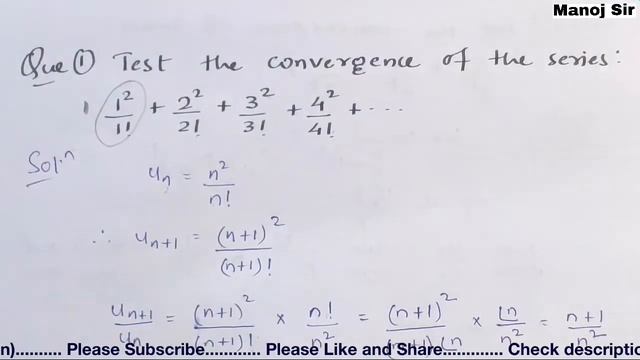 Manoj Sir
Que ① Test the convergence of the series:
1²/1! + 2²/2! + 3²/3! + 4²/4! + ...
Solⁿ
uₙ = n²/n!
∴ uₙ₊₁ = (n+1)²/(n+1)!
uₙ₊₁/uₙ = (n+1)²/(n+1)! × n!/n² = (n+1)²/(n+1)⌊n × ⌊n/n² = n+1/n²
n).......... Please Subscribe............ Please Like and Share............. Check descripti